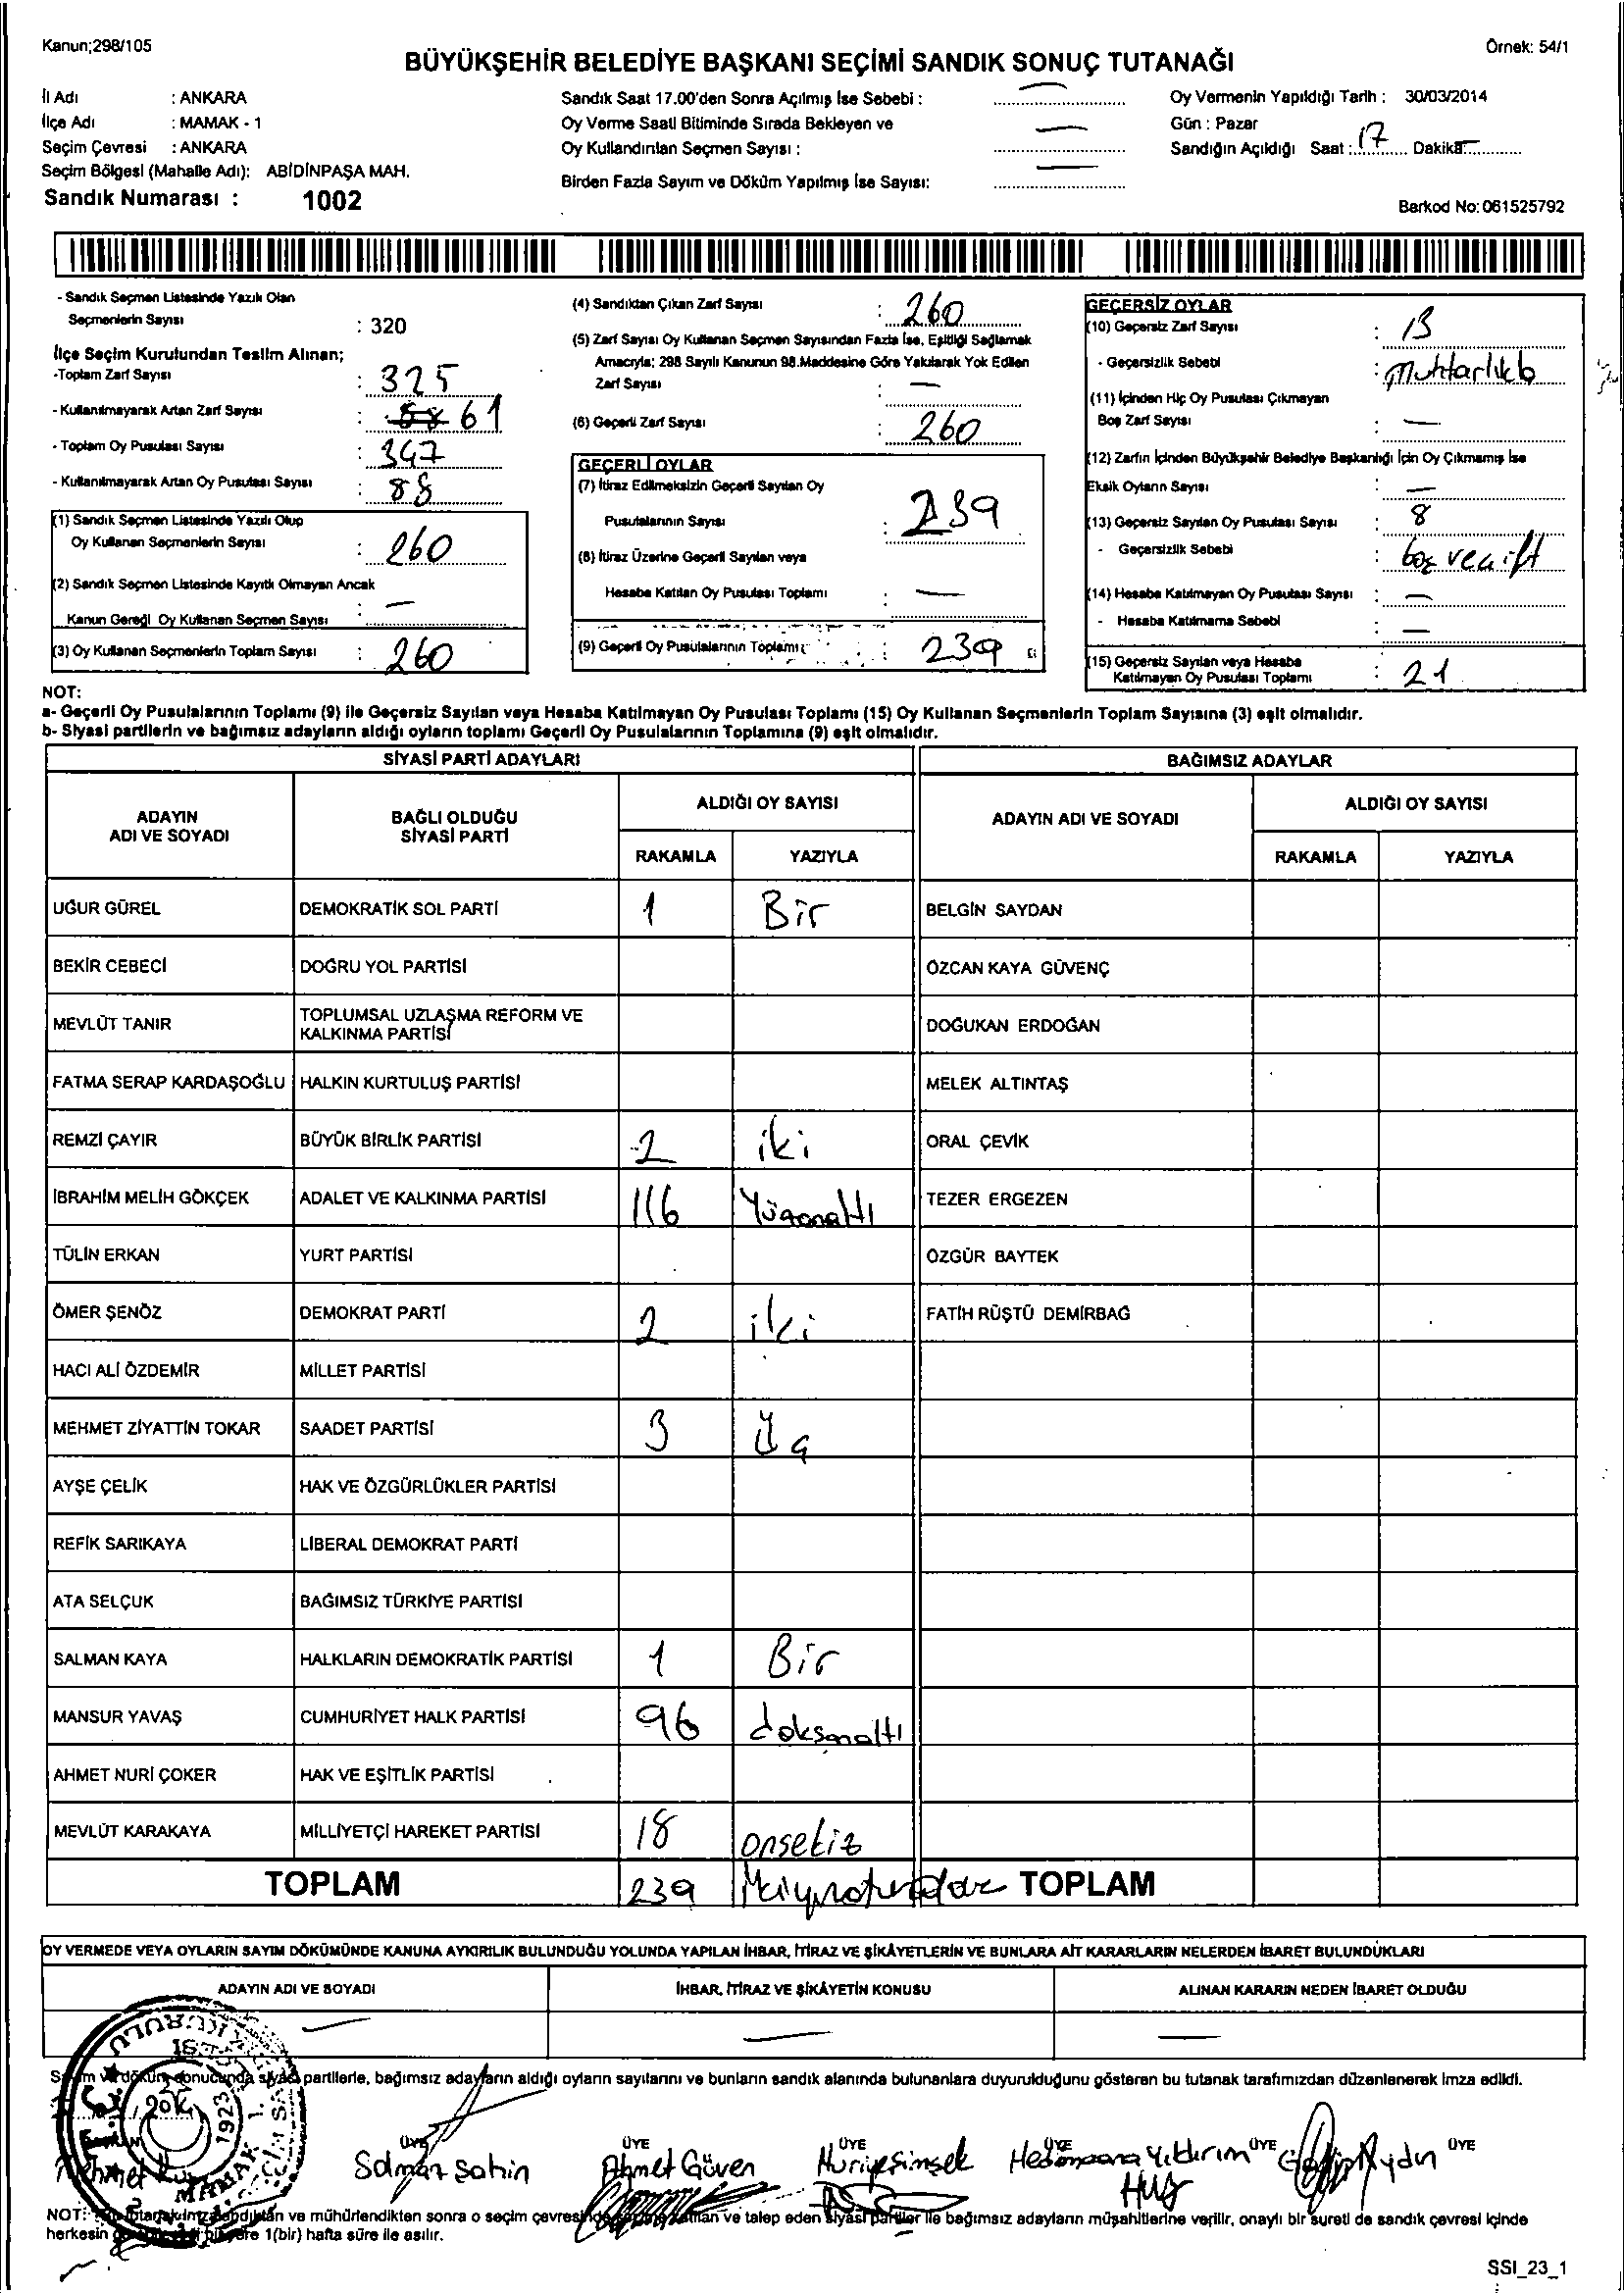 Kanun;298/105
Örnek: 54/1
BÜYÜKŞEHİR BELEDİYE BAŞKANI SEÇİMİ SANDIK SONUÇ TUTANAĞI
İl Adı : ANKARA
İlçe Adı : MAMAK - 1
Seçim Çevresi : ANKARA
Seçim Bölgesi (Mahalle Adı): ABİDİNPAŞA MAH.
Sandık Numarası : 1002
Sandık Saat 17.00'den Sonra Açılmış İse Sebebi : —
Oy Verme Saati Bitiminde Sırada Bekleyen ve
Oy Kullandırılan Seçmen Sayısı : —
Birden Fazla Sayım ve Döküm Yapılmış İse Sayısı: —
Oy Vermenin Yapıldığı Tarih : 30/03/2014
Gün : Pazar
Sandığın Açıldığı Saat : 17 Dakika: —
Barkod No: 061525792
- Sandık Seçmen Listesinde Yazılı Olan
Seçmenlerin Sayısı : 320
İlçe Seçim Kurulundan Teslim Alınan;
-Toplam Zarf Sayısı : 325
- Kullanılmayarak Artan Zarf Sayısı : 61
- Toplam Oy Pusulası Sayısı : 347
- Kullanılmayarak Artan Oy Pusulası Sayısı : 88
(1) Sandık Seçmen Listesinde Yazılı Olup
Oy Kullanan Seçmenlerin Sayısı : 260
(2) Sandık Seçmen Listesinde Kayıtlı Olmayan Ancak
Kanun Gereği Oy Kullanan Seçmen Sayısı : —
(3) Oy Kullanan Seçmenlerin Toplam Sayısı : 260
(4) Sandıktan Çıkan Zarf Sayısı : 260
(5) Zarf Sayısı Oy Kullanan Seçmen Sayısından Fazla İse, Eşitliği Sağlamak
Amacıyla; 298 Sayılı Kanunun 98.Maddesine Göre Yakılarak Yok Edilen
Zarf Sayısı : —
(6) Geçerli Zarf Sayısı : 260
GEÇERLİ OYLAR
(7) İtiraz Edilmeksizin Geçerli Sayılan Oy
Pusulalarının Sayısı : 239
(8) İtiraz Üzerine Geçerli Sayılan veya
Hesaba Katılan Oy Pusulası Toplamı : —
(9) Geçerli Oy Pusulalarının Toplamı : 239
GEÇERSİZ OYLAR
(10) Geçersiz Zarf Sayısı : 13
- Geçersizlik Sebebi : Muhtarlıkb
(11) İçinden Hiç Oy Pusulası Çıkmayan
Boş Zarf Sayısı : —
(12) Zarfın İçinden Büyükşehir Belediye Başkanlığı İçin Oy Çıkmamış İse
Eksik Oyların Sayısı : —
(13) Geçersiz Sayılan Oy Pusulası Sayısı : 8
- Geçersizlik Sebebi : boş ve çift
(14) Hesaba Katılmayan Oy Pusulası Sayısı : —
- Hesaba Katılmama Sebebi : —
(15) Geçersiz Sayılan veya Hesaba
Katılmayan Oy Pusulası Toplamı : 21
NOT:
a- Geçerli Oy Pusulalarının Toplamı (9) ile Geçersiz Sayılan veya Hesaba Katılmayan Oy Pusulası Toplamı (15) Oy Kullanan Seçmenlerin Toplam Sayısına (3) eşit olmalıdır.
b- Siyasi partilerin ve bağımsız adayların aldığı oyların toplamı Geçerli Oy Pusulalarının Toplamına (9) eşit olmalıdır.
SİYASİ PARTİ ADAYLARI
BAĞIMSIZ ADAYLAR
ADAYIN ADI VE SOYADI
BAĞLI OLDUĞU SİYASİ PARTİ
ALDIĞI OY SAYISI
RAKAMLA YAZIYLA
ADAYIN ADI VE SOYADI
ALDIĞI OY SAYISI
RAKAMLA YAZIYLA
UĞUR GÜREL DEMOKRATİK SOL PARTİ 1 Bir BELGİN SAYDAN
BEKİR CEBECİ DOĞRU YOL PARTİSİ ÖZCAN KAYA GÜVENÇ
MEVLÜT TANIR TOPLUMSAL UZLAŞMA REFORM VE KALKINMA PARTİSİ DOĞUKAN ERDOĞAN
FATMA SERAP KARDAŞOĞLU HALKIN KURTULUŞ PARTİSİ MELEK ALTINTAŞ
REMZİ ÇAYIR BÜYÜK BİRLİK PARTİSİ 2 iki ORAL ÇEVİK
İBRAHİM MELİH GÖKÇEK ADALET VE KALKINMA PARTİSİ 116 Yüzonaltı TEZER ERGEZEN
TÜLİN ERKAN YURT PARTİSİ ÖZGÜR BAYTEK
ÖMER ŞENÖZ DEMOKRAT PARTİ 2 iki FATİH RÜŞTÜ DEMİRBAĞ
HACI ALİ ÖZDEMİR MİLLET PARTİSİ
MEHMET ZİYATTİN TOKAR SAADET PARTİSİ 3 Üç
AYŞE ÇELİK HAK VE ÖZGÜRLÜKLER PARTİSİ
REFİK SARIKAYA LİBERAL DEMOKRAT PARTİ
ATA SELÇUK BAĞIMSIZ TÜRKİYE PARTİSİ
SALMAN KAYA HALKLARIN DEMOKRATİK PARTİSİ 1 Bir
MANSUR YAVAŞ CUMHURİYET HALK PARTİSİ 96 doksanaltı
AHMET NURİ ÇOKER HAK VE EŞİTLİK PARTİSİ
MEVLÜT KARAKAYA MİLLİYETÇİ HAREKET PARTİSİ 18 onsekiz
TOPLAM 239 TOPLAM
OY VERMEDE VEYA OYLARIN SAYIM DÖKÜMÜNDE KANUNA AYKIRILIK BULUNDUĞU YOLUNDA YAPILAN İHBAR, İTİRAZ VE ŞİKÂYETLERİN VE BUNLARA AİT KARARLARIN NELERDEN İBARET BULUNDUKLARI
ADAYIN ADI VE SOYADI İHBAR, İTİRAZ VE ŞİKÂYETİN KONUSU ALINAN KARARIN NEDEN İBARET OLDUĞU
— — —
Sayım ve döküm sonucunda siyasi partilerle, bağımsız adayların aldığı oyların sayılarını ve bunların sandık alanında bulunanlara duyurulduğunu gösteren bu tutanak tarafımızdan düzenlenerek imza edildi.
2014
ÜYE ÜYE ÜYE ÜYE ÜYE ÜYE
Mehmet Salman Şahin Ahmet Güven Huriye Şimşek Yıldırım Aydın
1923 MAMAK
NOT: ve mühürlendikten sonra o seçim ve talep eden siyasi partiler ile bağımsız adayların müşahitlerine verilir, onaylı bir sureti de sandık çevresi içinde
herkesin 1(bir) hafta süre ile asılır.
SSI_23_1